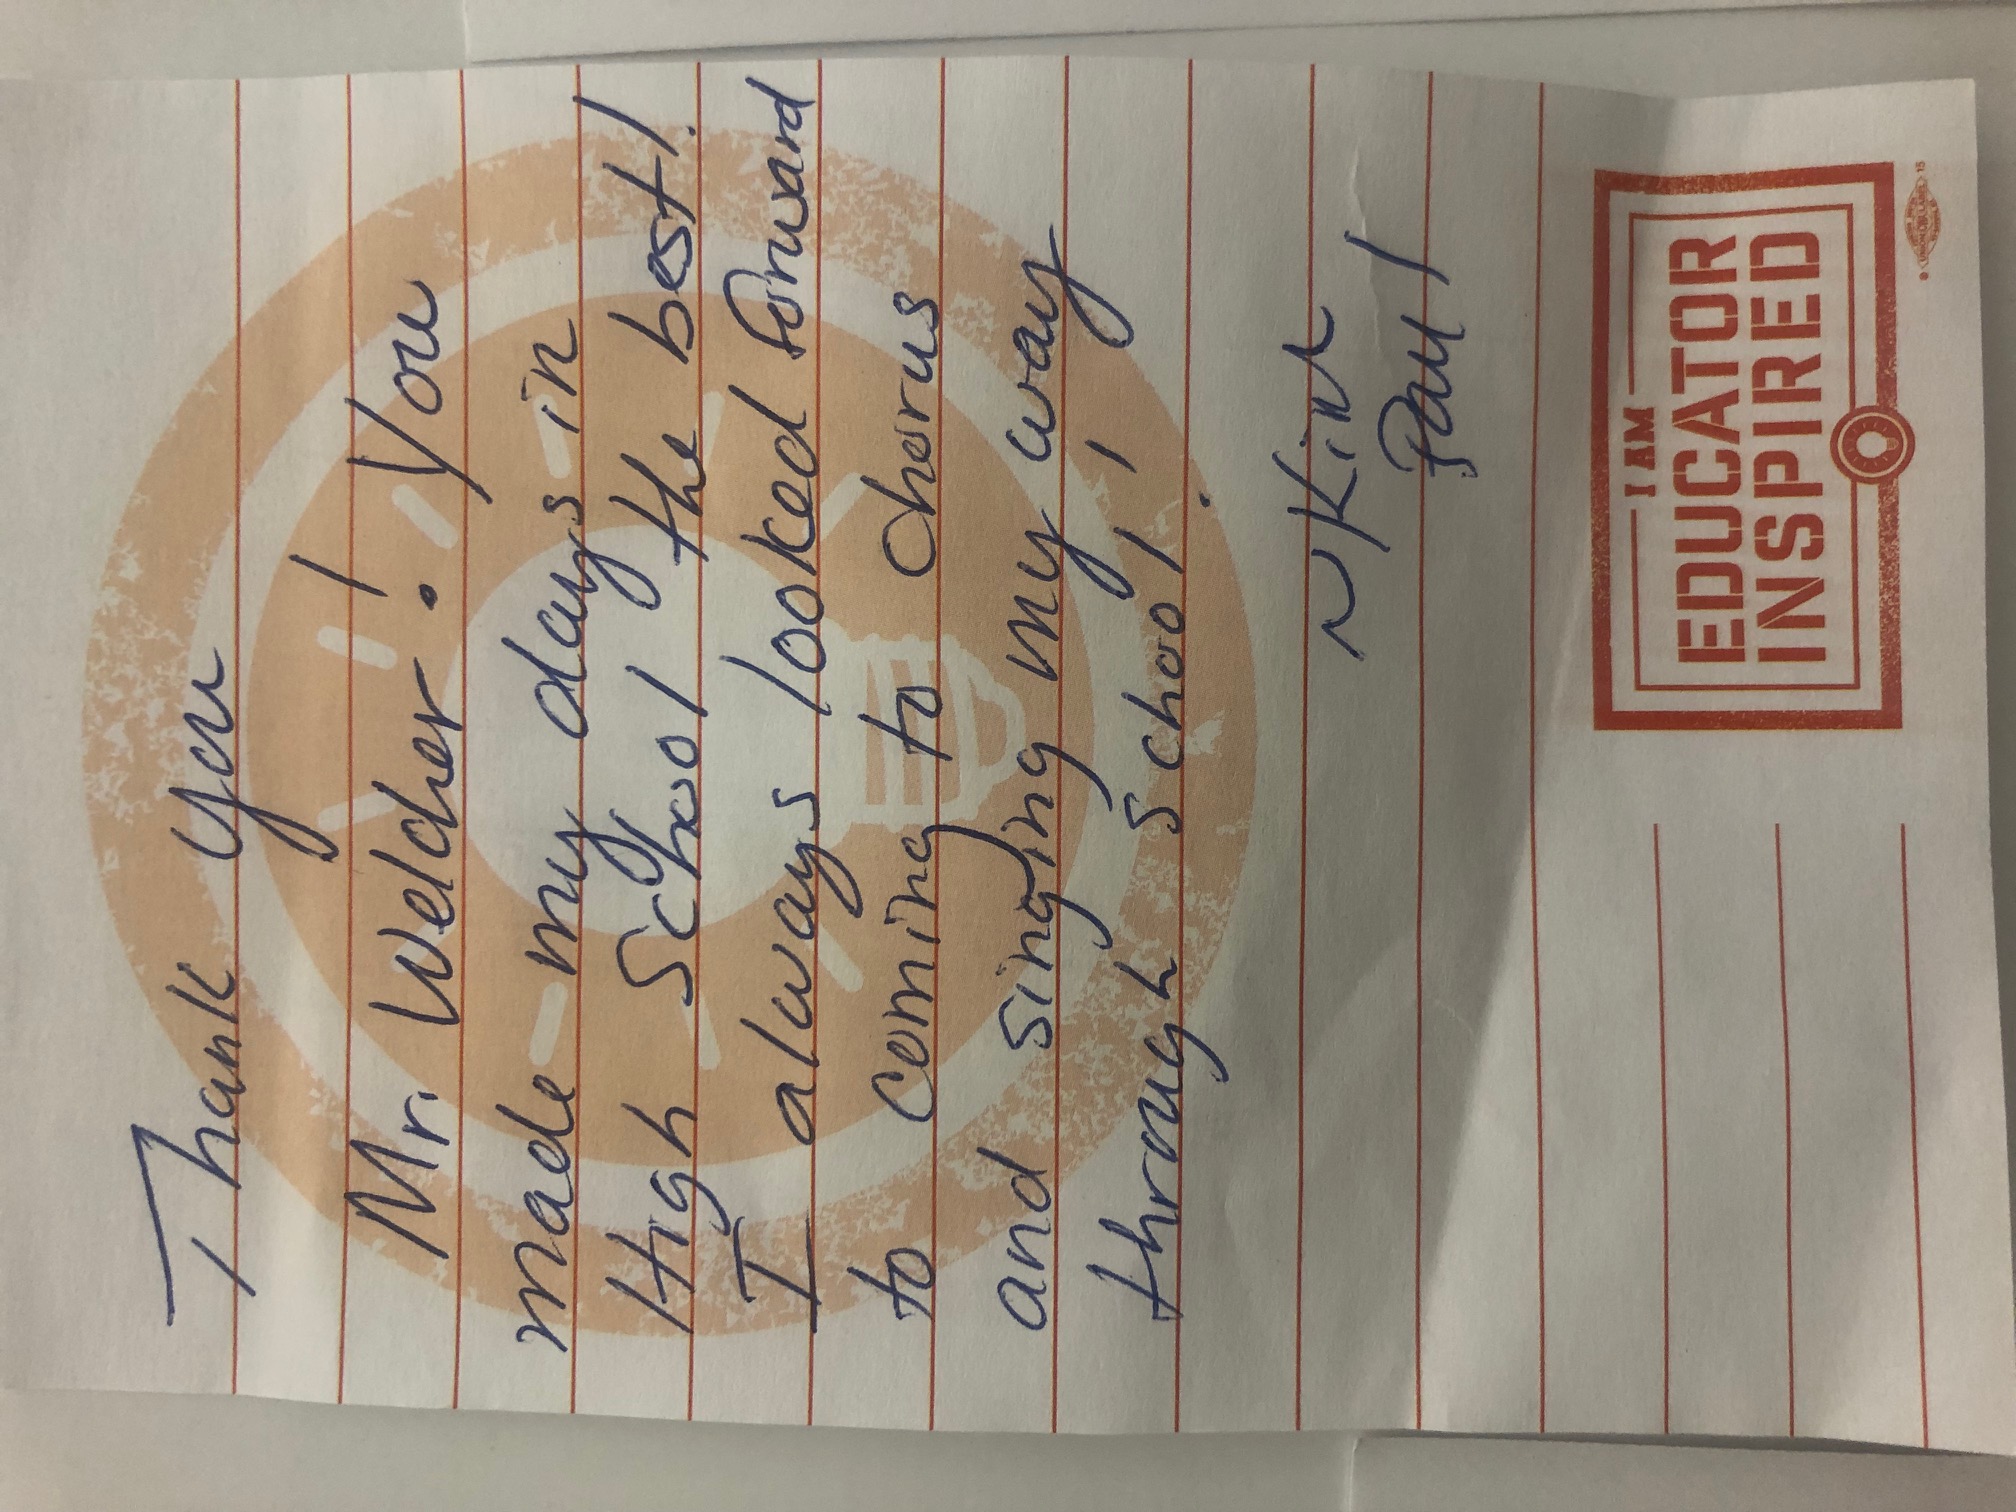 Thank you
Mr. Welcher! You
made my days in
High School the best!
I always looked forward
to coming to chorus
and singing my way
through school!
~ Kim
Paul
I AM
EDUCATOR
INSPIRED